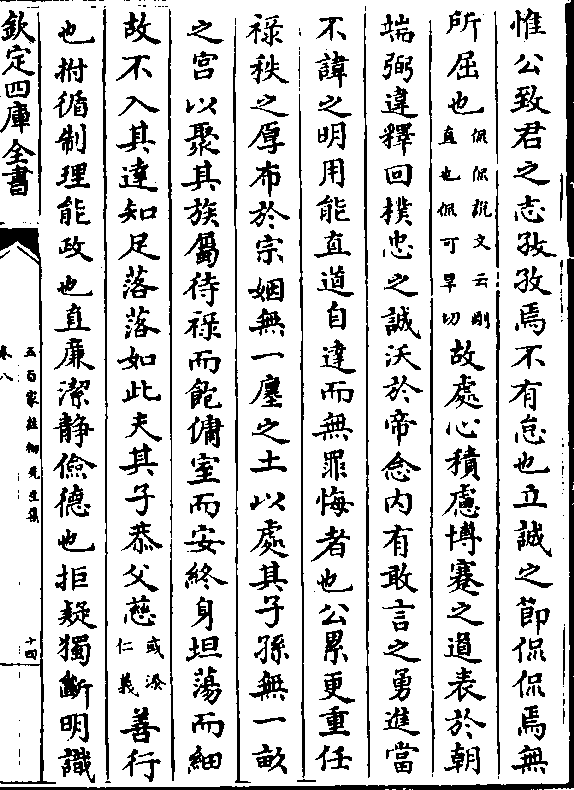 惟公致君之志孜孜焉不有怠也立誠之節侃侃焉無
所屈也侃侃說文云剛直也侃可旱切故處心積慮博蹇之道表於朝
端弼違釋回樸忠之誠沃於帝念内有敢言之勇進當
不諱之明用能直道自達而無罪悔者也公累更重任
祿秩之厚布於宗姻無一廛之土以處其子孫無一畝
之宫以聚其族屬待祿而飽傭室而安終身坦蕩而細
故不入其達知足落落如此夫其子恭父慈或湊仁義善行
也拊循制理能政也直廉潔静儉德也拒疑獨斷明識
欽定四庫全書
卷八
五百家註柳先生集
十四